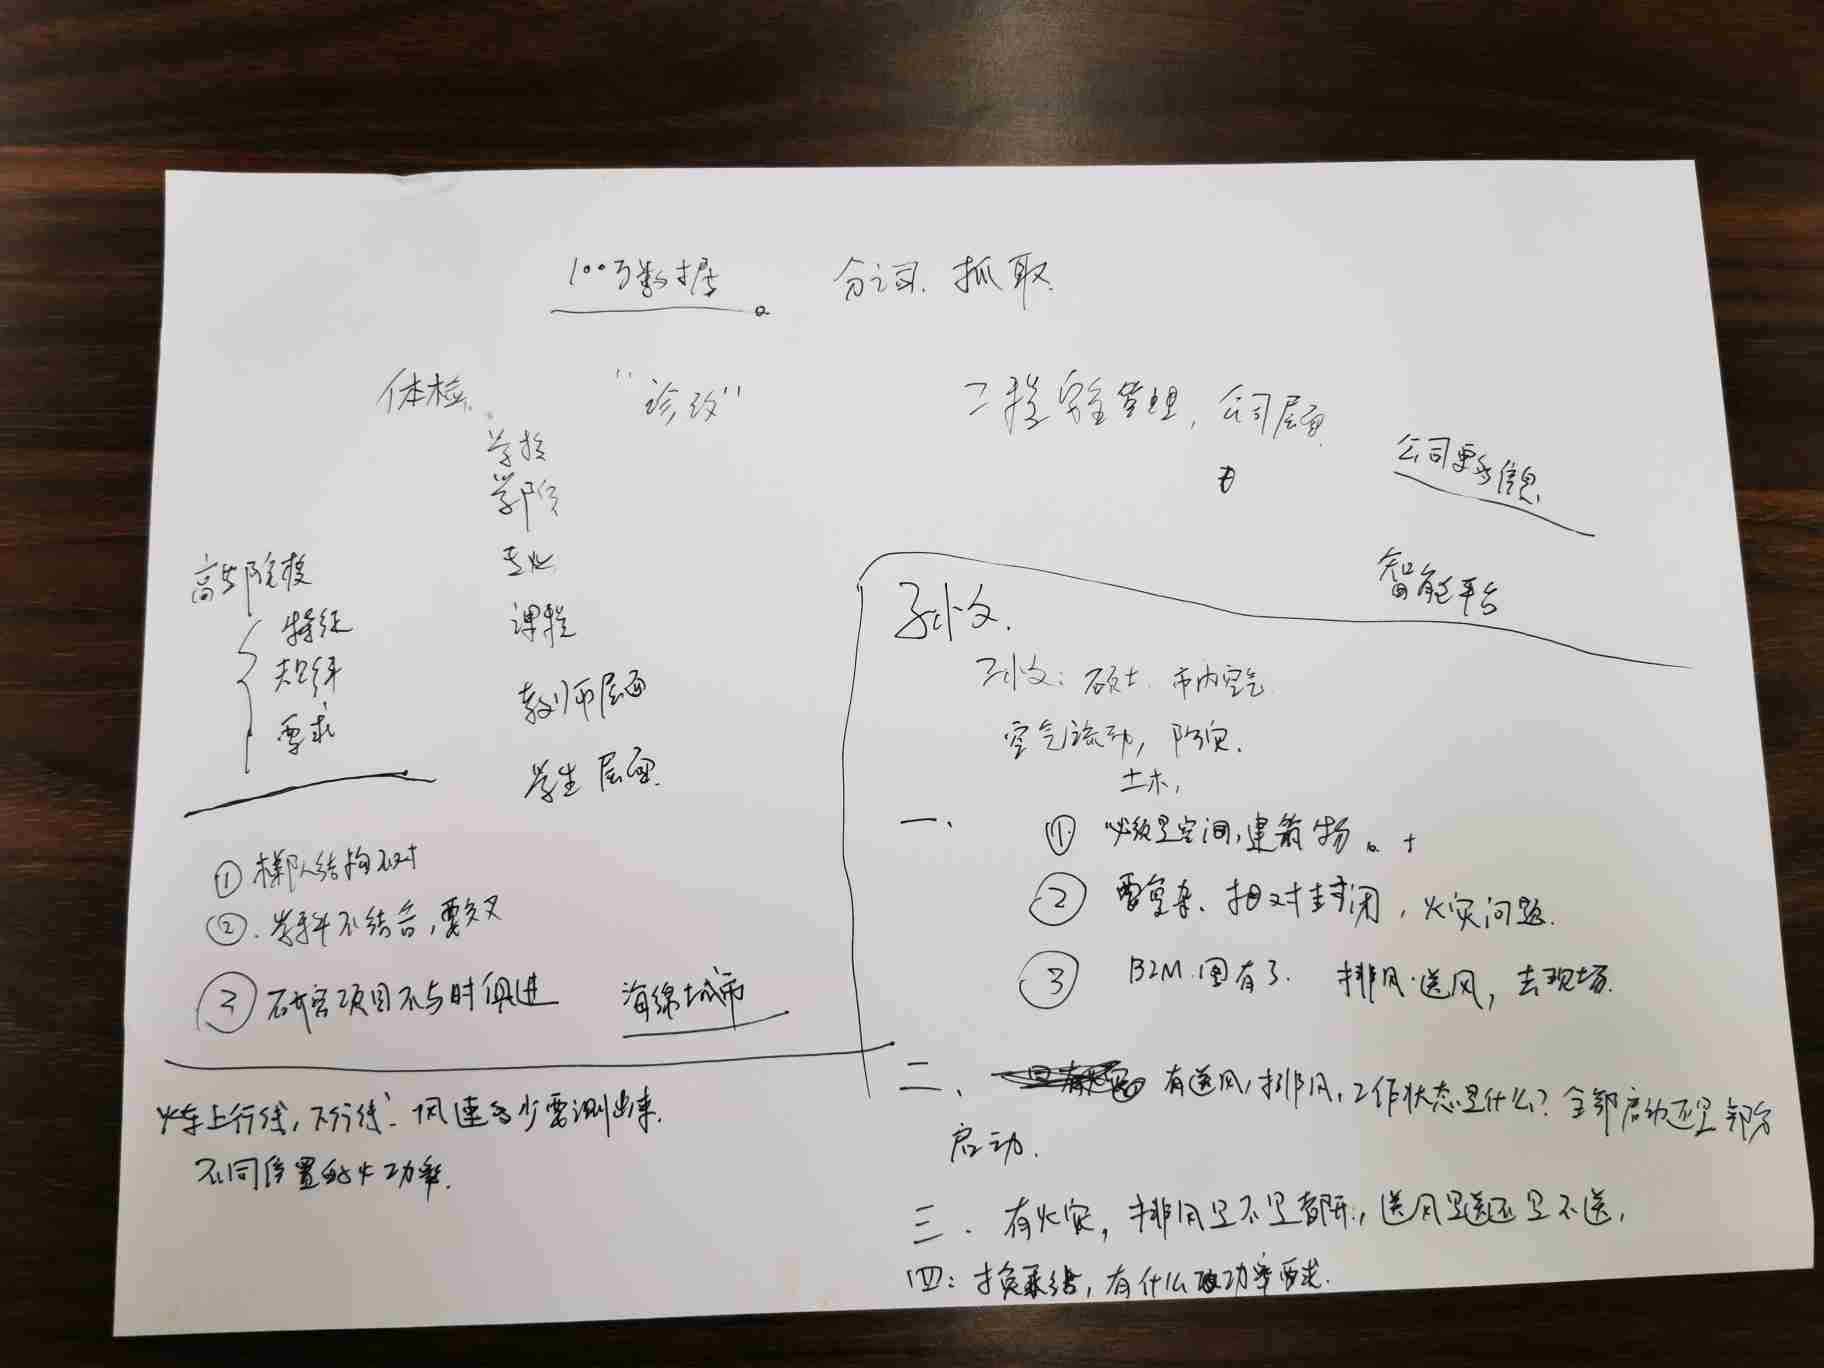 100万数据。 分词. 抓取.
体检. “诊改” 工程安全管理, 公司层面.
学校
学院 公司更多信息.
专业
高考院校 课程 智能平台
特征
规律
要求
教师层面
学生层面.
① 梯队结构不对
②. 学科不结合, 要交叉
③ 研究项目不与时俱进 海绵城市
火车上行线, 下行线. 风速多少要测出来.
不同位置的火功率.
孙文.
孙文: 硕士. 市内空气.
空气流动, 防灾.
土木,
一、 ① 必须是空间, 建筑物。+
② 要复杂、相对封闭, 火灾问题.
③ BIM.图有了. 排风.送风, 去现场.
二、 有送风, 排风, 工作状态是什么? 全部启动还是部分
启动.
三. 有火灾, 排风是不是都开, 送风是送还是不送,
四: 换乘站, 有什么功率要求.